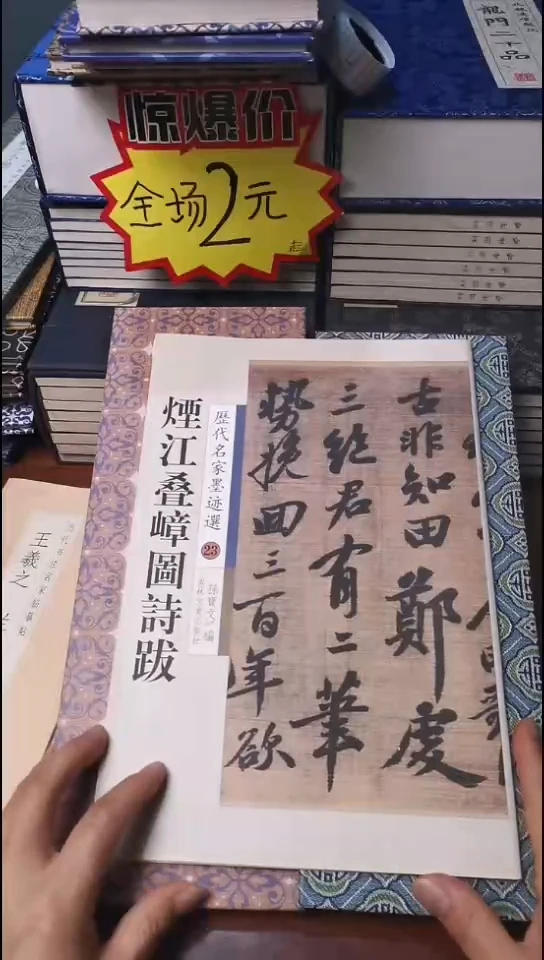 惊爆价
全场2元
龍門二十品
煙江叠嶂圖詩跋
歷代名家墨迹選
23
孫寶文 編
古非知田鄭虔
三絕君有二筆
勢挽回三百年欲
王羲之